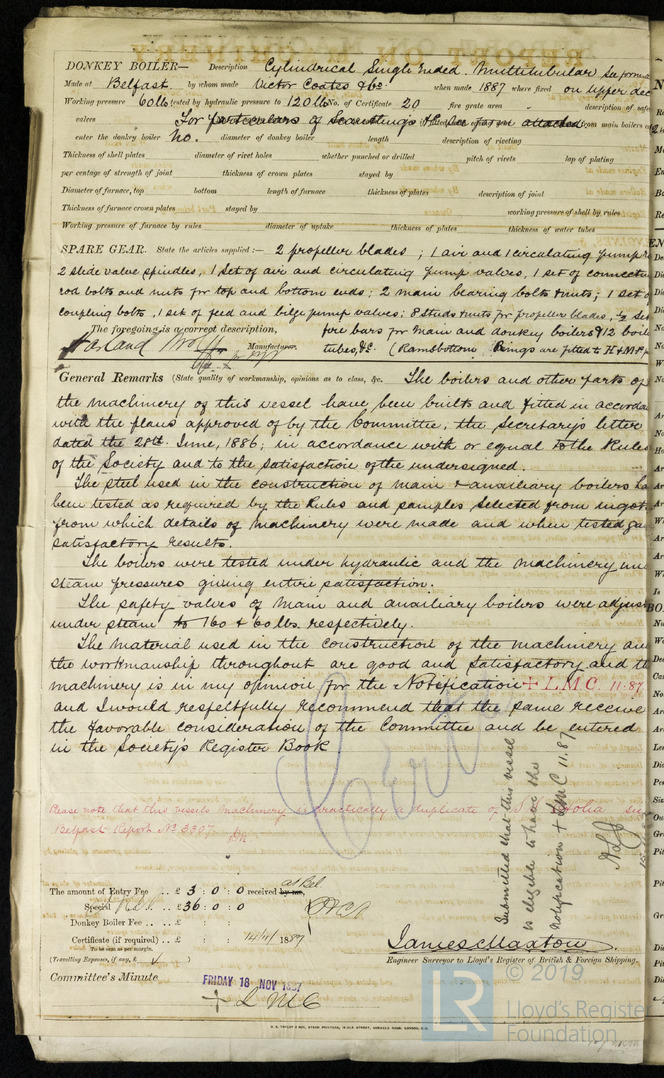 DONKEY BOILER— Description Cylindrical Single Ended. Multitubular See forma
Made at Belfast. by whom made Victor Coates & Co. when made 1887 where fixed on Upper dec
Working pressure 60lb tested by hydraulic pressure to 120lb No. of Certificate 20 fire grate area description of safe
valves For particulars of Scantlings &c. See form attached from main boilers
enter the donkey boiler No. diameter of donkey boiler length description of riveting
Thickness of shell plates diameter of rivet holes whether punched or drilled pitch of rivets lap of plating
per centage of strength of joint thickness of crown plates stayed by
Diameter of furnace, top bottom length of furnace thickness of plates description of joint
Thickness of furnace crown plates stayed by working pressure of shell by rules
Working pressure of furnace by rules diameter of uptake thickness of plates thickness of water tubes
SPARE GEAR. State the articles supplied :— 2 propeller blades ; 1 air and 1 circulating pump r
2 slide valve spindles, 1 set of air and circulating pump valves, 1 set of connectin
rod bolts and nuts for top and bottom ends ; 2 main bearing bolts & nuts ; 1 set o
coupling bolts, 1 set of feed and bilge pump valves ; 8 Studs & nuts for propeller blades, ½ Set
The foregoing is a correct description, fire bars for main and donkey boilers & 12 boil
Harland Wolff Manufacturer. tubes, &c. (Ramsbottom Rings are fitted to H & M P
General Remarks (State quality of workmanship, opinions as to class, &c. The boilers and other parts of
the machinery of this vessel have been built and fitted in accorda
with the plans approved of by the Committee, the Secretary's letter
dated the 28th. June, 1886; in accordance with or equal to the Rules
of the Society and to the satisfaction of the undersigned.
The steel used in the construction of main & auxiliary boilers ha
been tested as required by the Rules and samples selected from ingots
from which details of machinery were made and when tested ga
satisfactory results.
The boilers were tested under hydraulic and the machinery und
steam pressures giving entire satisfaction.
The safety valves of main and auxiliary boilers were adjust
under steam to 160 & 60 lbs. respectively.
The material used in the construction of the machinery an
the workmanship throughout are good and satisfactory and th
machinery is in my opinion for the Notification + L.M.C. 11.87
and I would respectfully recommend that the same receive
the favorable consideration of the Committee and be entered
in the Society's Register Book
Please note that this vessels machinery is practically a duplicate of
Belfast Report No. 3307
Submitted that this vessel
is eligible to have the
Notification + LMC 11.87
The amount of Entry Fee .. £ 3 : 0 : 0 received by me,
Special £36 : 0 : 0
Donkey Boiler Fee .. .. £ : :
Certificate (if required) .. £ : : 14/11/1887
To be sent as per margin.
(Travelling Expenses, if any, £ )
James Maxton.
Engineer Surveyor to Lloyd's Register of British & Foreign Shipping.
Committee's Minute FRIDAY 18 NOV 1887
+ LMC
LR © 2019
Lloyd's Registe
Foundation